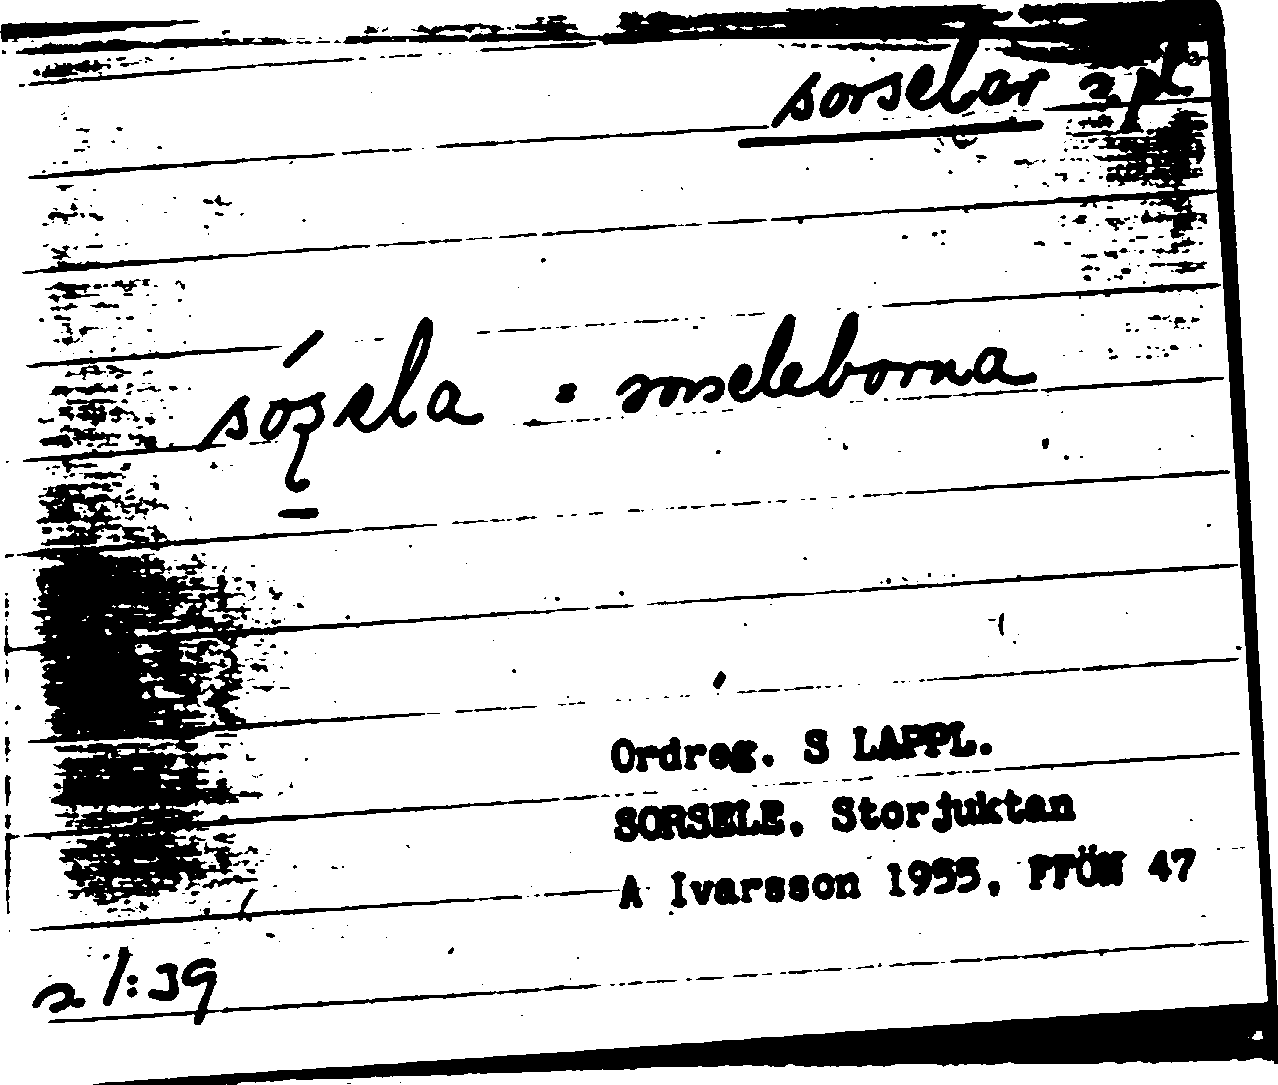 sorselar s pl
sóʒela = sorseleborna
Ordreg. S LAPPL.
SORSELE. Storjuktan
A Ivarsson 1955, FFÖN 47
s 1:39